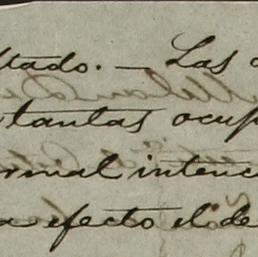 ltado. — Las
tantas ocup
ormal intenc
a efecto el de